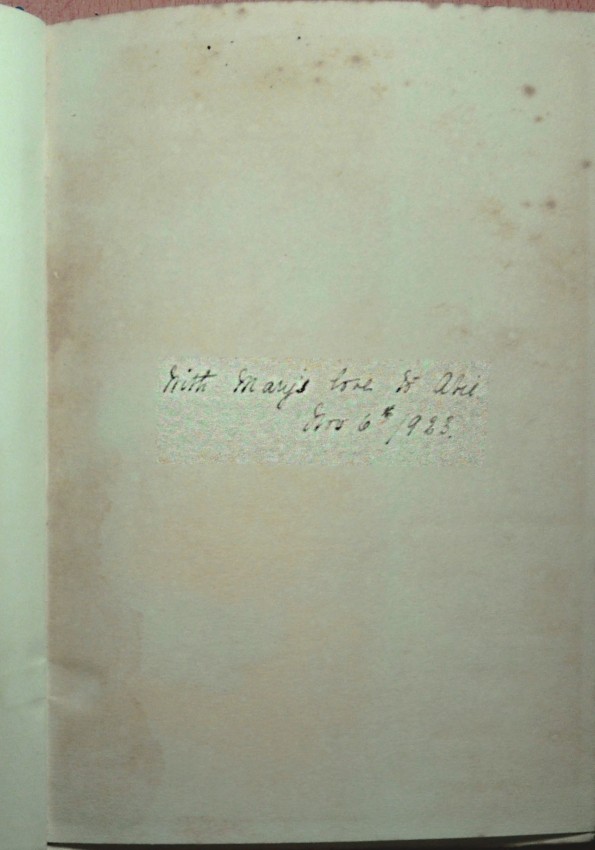 With Mary's love to Abie.
Nov 6th 1923.